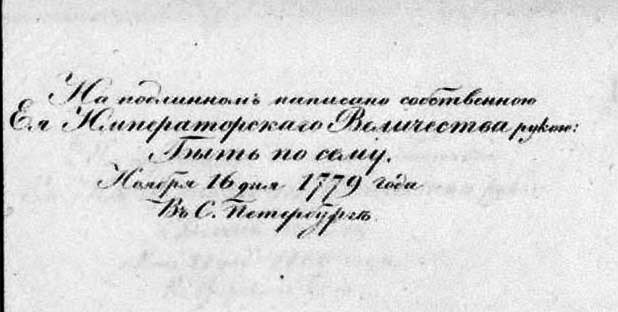 На подлинномъ написано собственною
Ея Императорскаго Величества рукою:
Быть по сему.
Ноября 16 дня 1779 года
Въ С. Петербургѣ.